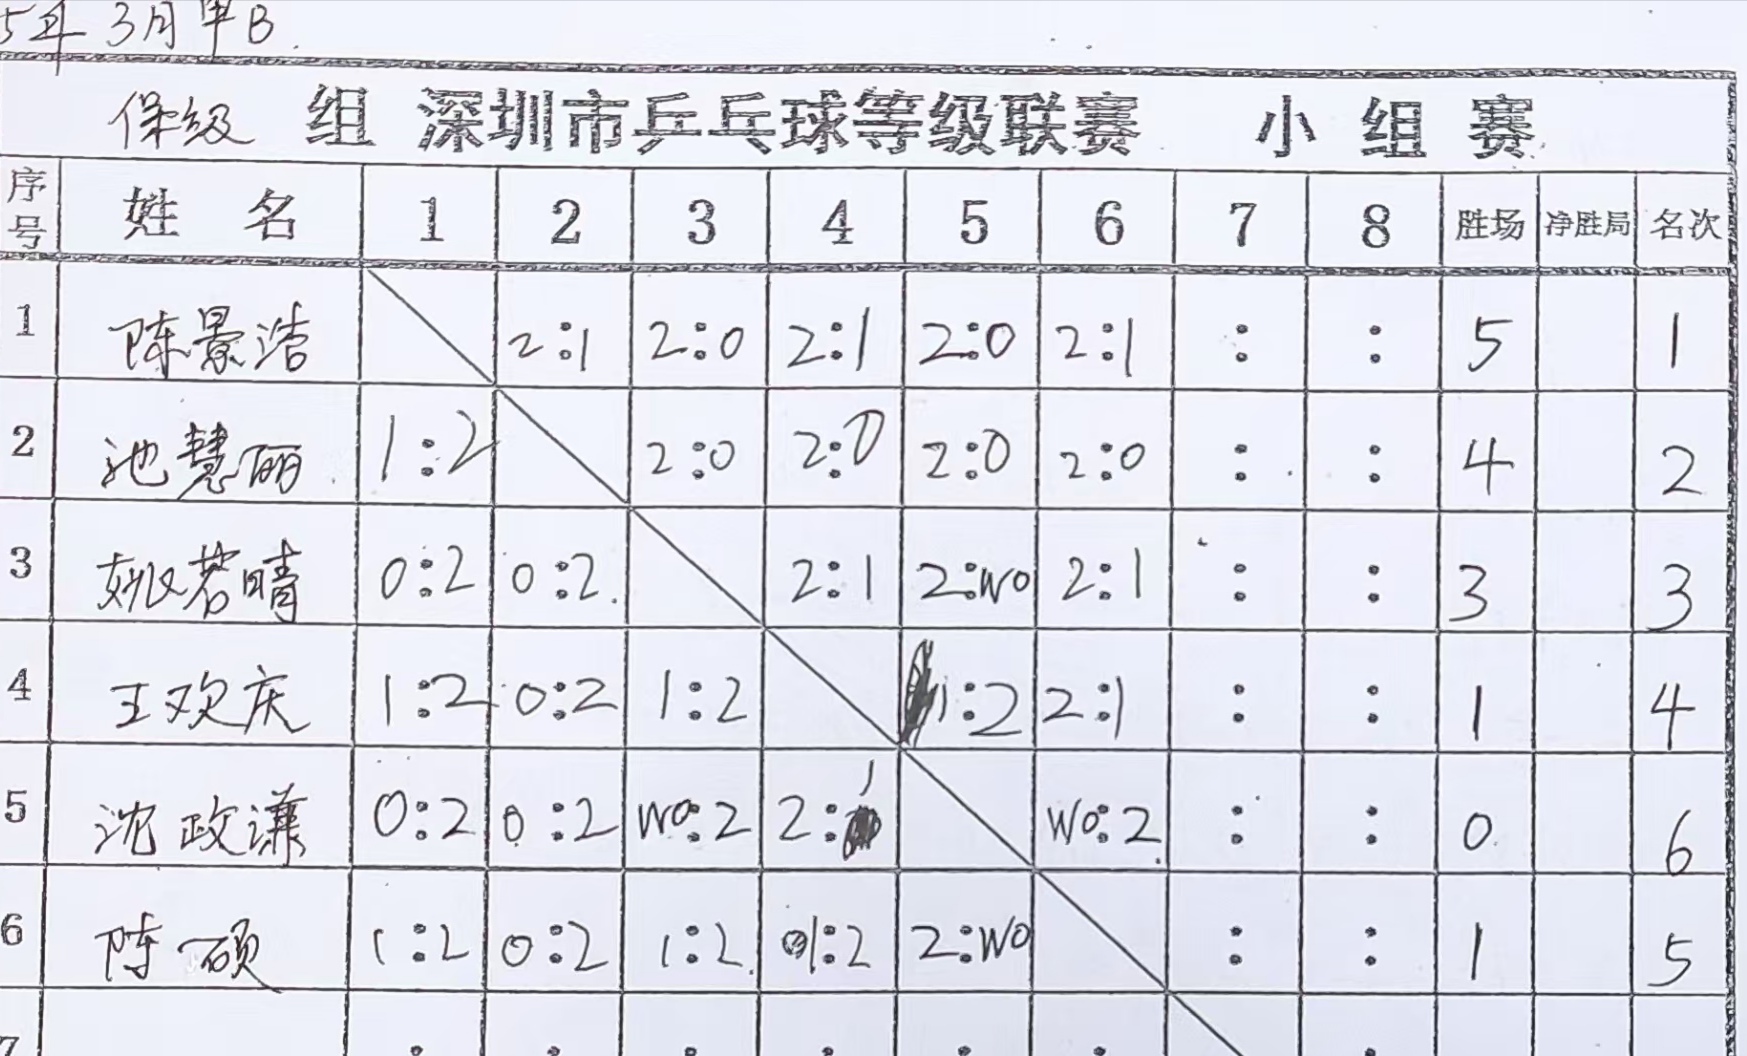 5年3月甲B.
保级 组 深圳市乒乓球等级联赛 小组赛
序号 姓名 1 2 3 4 5 6 7 8 胜场 净胜局 名次
1 陈景浩 2:1 2:0 2:1 2:0 2:1 : : 5 1
2 池慧丽 1:2 2:0 2:0 2:0 2:0 : : 4 2
3 姚若晴 0:2 0:2 2:1 2:W0 2:1 : : 3 3
4 王欢庆 1:2 0:2 1:2 1:2 2:1 : : 1 4
5 沈政谦 0:2 0:2 W0:2 2:1 W0:2 : : 0 6
6 陈硕 1:2 0:2 1:2 1:2 2:W0 : : 1 5
7 : : : : : : :